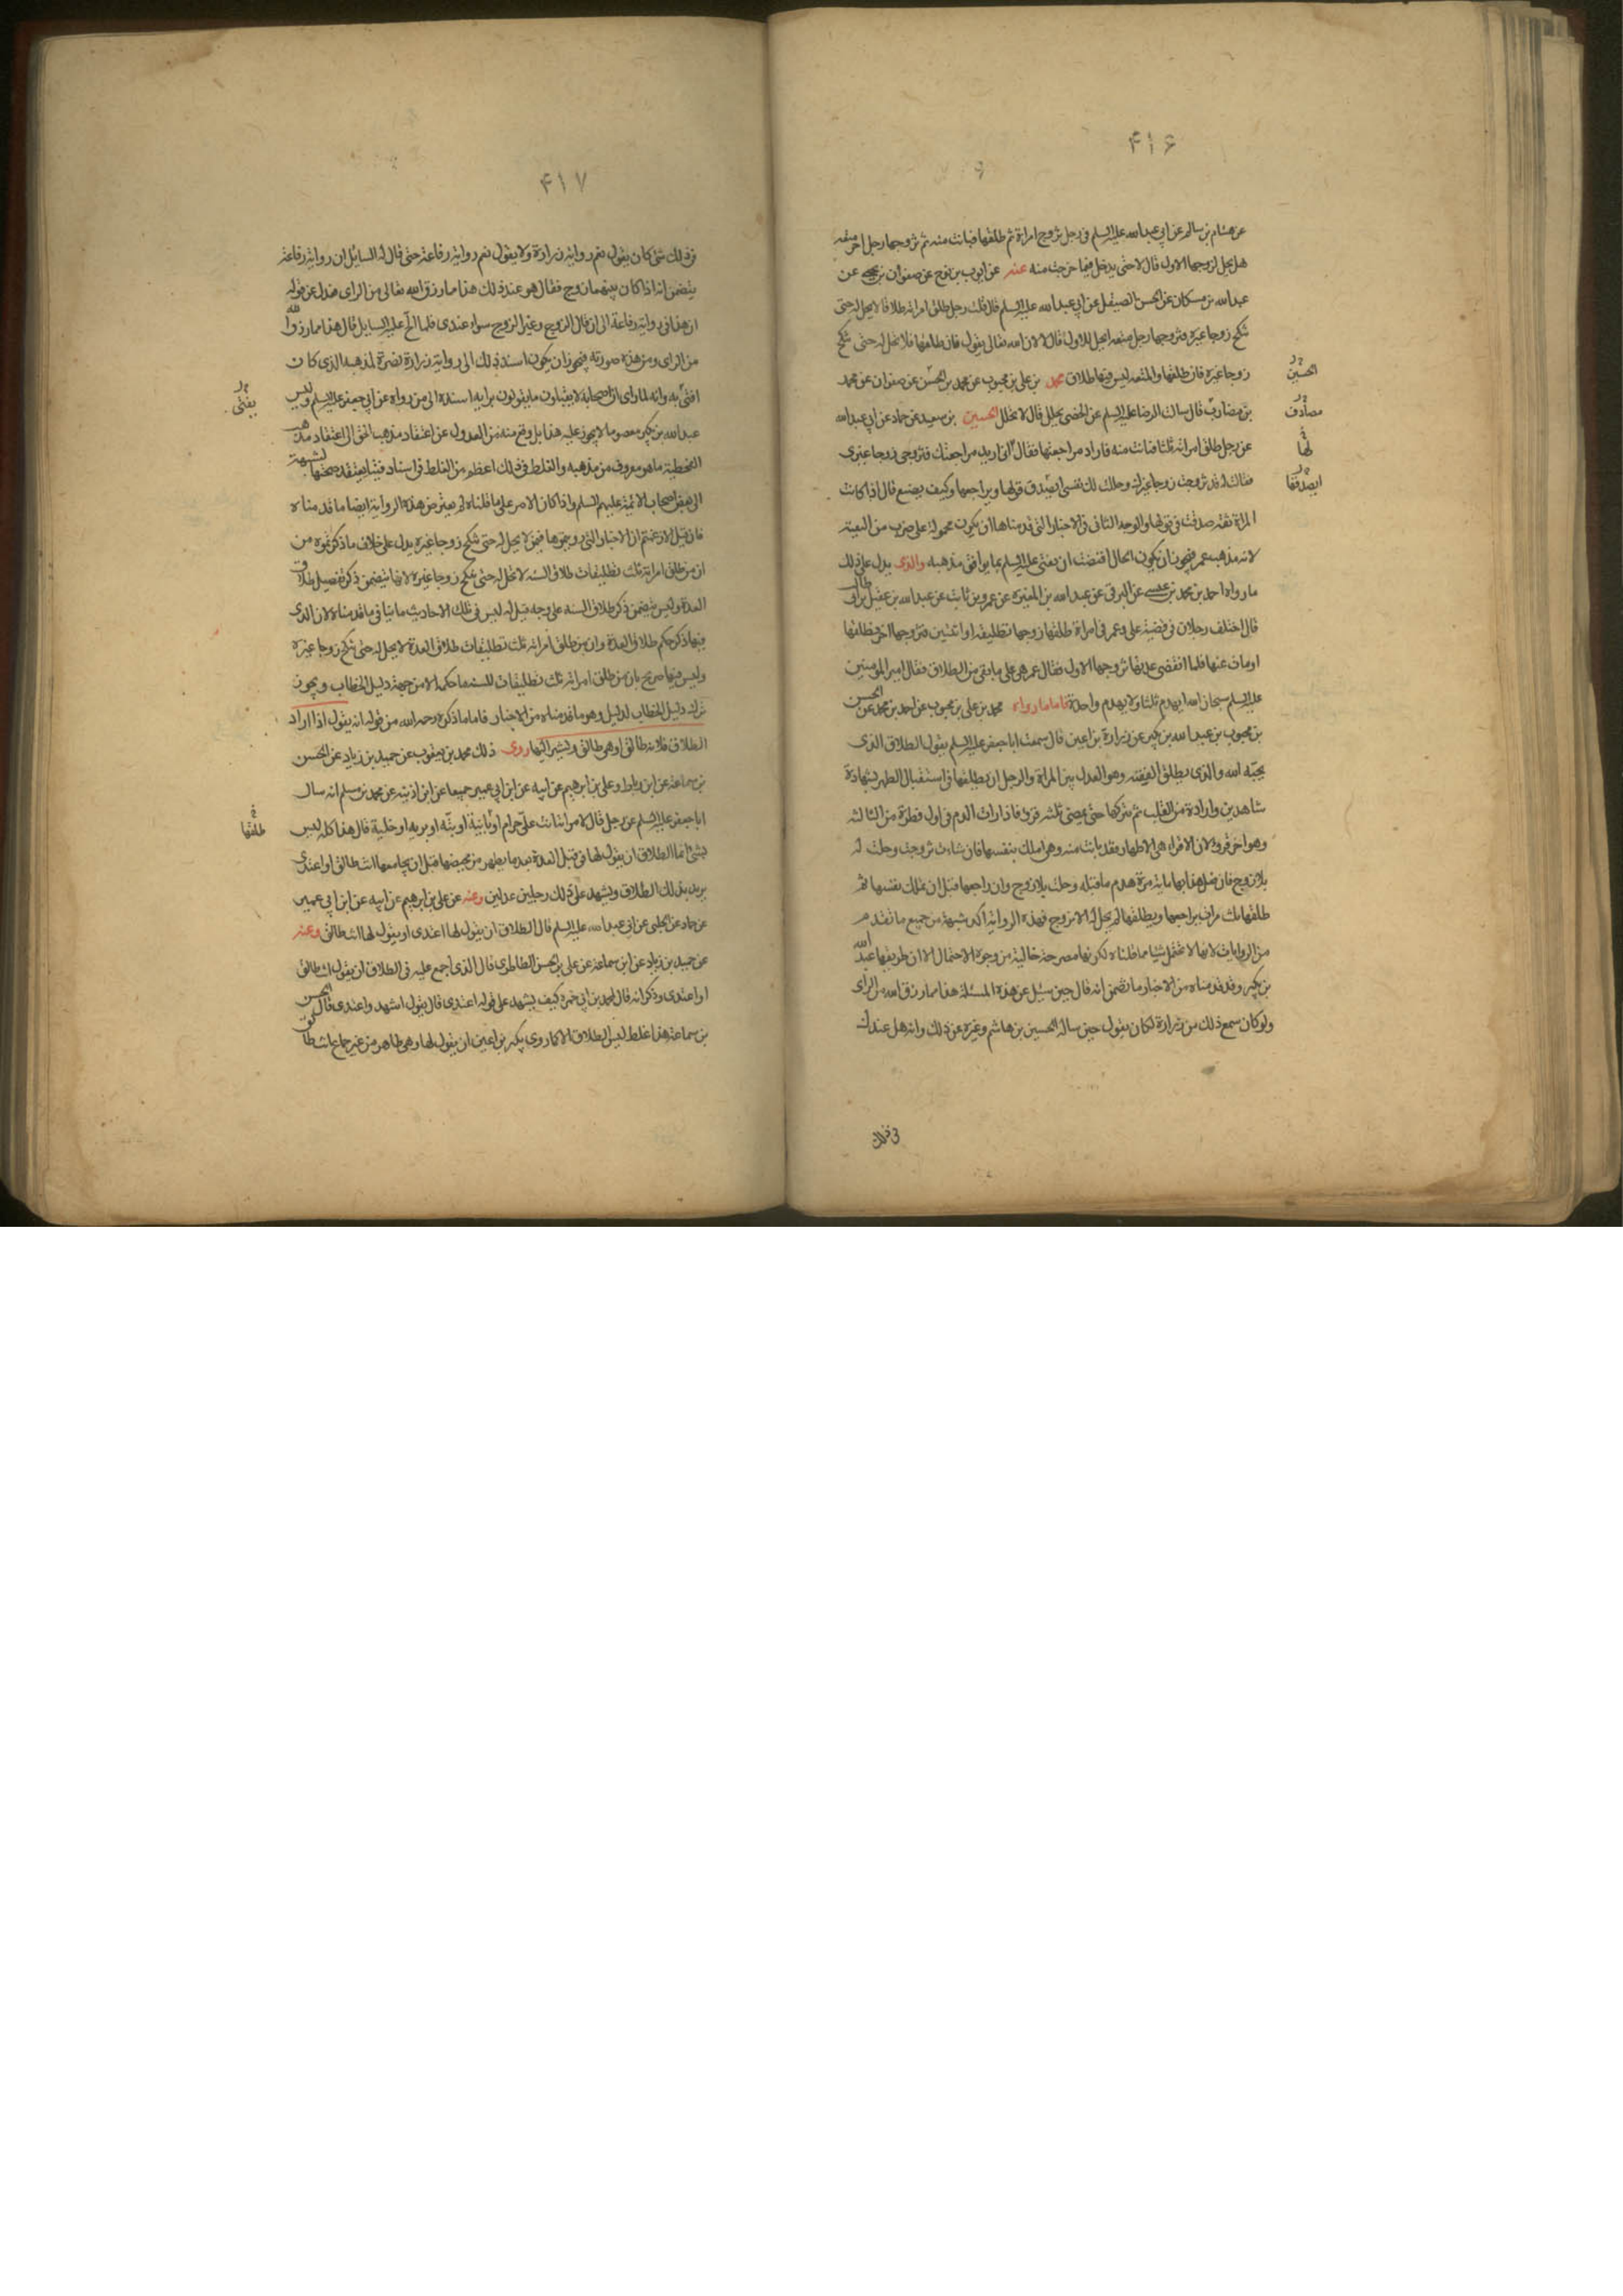 ۴۱۶
عن هشام بن سالم عن ابي عبدالله عليه السلم في رجل تزوج امراة ثم طلقها فبانت منه ثم تزوجها رجل اخر متعه
هل يحل لزوجها الاول قال لا حتى يدخل فيما خرجت منه عنه عن ايوب بن نوح عن صفوان بن يحيى عن
عبدالله بن مسكان عن الحسن الصيقل عن ابي عبدالله عليه السلم قال قلت رجل طلق امراته طلاقا لا يحل له حتى
تنكح زوجا غيره فتزوجها رجل متعه ايحل للاول قال لا لان الله تعالى يقول فان طلقها فلا تحل له حتى تنكح
زوجا غيره فان طلقها والمتعه ليس فيها طلاق محمد بن علي بن محبوب عن محمد بن الحسن عن صفوان عن محمد
الحسين
بن مضارب قال سالت الرضا عليه السلم عن الخصي يحلل قال لا يحلل الحسين بن سعيد عن حماد عن ابي عبدالله
مصادف
عن رجل طلق امراته ثلثا فبانت منه فاراد مراجعتها فقال اني اريد مراجعتك فتزوجي زوجا غيري
لها
فقالت له قد تزوجت زوجا غيرك وحللت لك نفسي ايصدق قولها ويراجعها وكيف يصنع قال اذا كانت
ايصدقها
المراة ثقه صدقت في قولها والوجه الثاني في الاخبار التي قدمناها ان يكون محمولة على ضرب من التقية
لانه مذهب عمر فيجوز ان يكون الحال اقتضت ان يفتى عليه السلم بما يوافق مذهبه والذي يدل على ذلك
ما رواه احمد بن محمد بن عيسى عن البرقي عن عبدالله بن المغيره عن عمرو بن ثابت عن عبدالله بن عقيل بن ابي طالب
قال اختلف رجلان في قضية علي وعمر في امراة طلقها زوجها تطليقه او اثنتين فتزوجها اخر فطلقها
او مات عنها فلما انقضى عدتها تزوجها الاول فقال عمر هي على ما بقي من الطلاق فقال امير المومنين
عليه السلم سبحان الله ايهدم ثلثا ولا يهدم واحدة فاما ما رواه محمد بن علي بن محبوب عن احمد بن محمد عن الحسن
بن محبوب بن عبدالله بن بكير عن زرارة بن اعين قال سمعت ابا جعفر عليه السلم يقول الطلاق الذي
يحبه الله والذي يطلق الفقيه وهو العدل بين المراة والرجل ان يطلقها في استقبال الطهر بشهادة
شاهدين وارادة من القلب ثم يتركها حتى يمضي ثلثه قروء فاذا رات الدم في اول قطرة من الثالثه
وهو اخر قروء لان الاقراء هي الاطهار فقد بانت منه وهي املك بنفسها فان شاءت تزوجت وحلت له
بلا زوج فان فعل هذا بها مايه مرة هدم ما قبله وحلت بلا زوج وان راجعها قبل ان تملك نفسها ثم
طلقها ثلث مرات يراجعها ويطلقها لم يحل له الا بزوج فهذه الروايه اكد شبهة من جميع ما تقدم
من الروايات لانها لا تحتمل شيا مما قلناه لكونها مصرحة خالية من وجوه الاحتمال الا ان طريقها عبدالله
بن بكير وقد قدمناه من الاخبار ما تضمن انه قال حين سئل عن هذه المسئلة هذا مما رزق الله من الراى
ولو كان سمع ذلك من زرارة لكان يقول حين ساله الحسين بن هاشم وغيره عن ذلك وانه هل عندك
في ذلك
۴۱۷
في ذلك شئ كان يقول نعم رواية زرارة ولا يقول نعم رواية رفاعة حتى قال له السايل ان رواية رفاعة
يتضمن انه اذا كان بينهما زوج فقال هو عند ذلك هذا مما رزق الله تعالى من الراى فعدل عن قوله
ان هذا في رواية رفاعة الى ان قال الزوج وغير الزوج سواء عندي فلما الح عليه السايل قال هذا مما رزق الله
من الراى ومن هذه صورته فيجوز ان يكون اسند ذلك الى رواية زرارة نصرة لمذهبه الذي كان
افتى به وانه لما راى ان اصحابه لا يقبلون ما يقولون برايه اسنده الى من رواه عن ابي جعفر عليه السلم وليس
يفتى
عبدالله بن بكير معصوما لا يجوز عليه هذا بل وقع منه من العدول عن اعتقاد مذهب الحق الى اعتقاد مذهب
الفطحية ما هو معروف من مذهبه والغلط في ذلك اعظم من الغلط في اسناد فتيا يعتقد صحتها لشبهة
الى بعض اصحاب الائمة عليهم السلم واذا كان الامر على ما قلناه لم يعترض هذه الرواية ايضا ما قدمناه
فان قيل الا زعمتم ان الاخبار التي رويتموها فيمن لا يحل له حتى تنكح زوجا غيره يدل على خلاف ما ذكرتموه من
ان من طلق امراته ثلث تطليقات طلاق السنه لا تحل له حتى تنكح زوجا غيره لانها يتضمن ذكر تفصيل طلاق
العدة وليس يتضمن ذكر طلاق السنه على وجه قيل له ليس في تلك الاحاديث ما ينافي ما قدمناه لان الذي
فيها ذكر حكم طلاق العدة وان من طلق امراته ثلث تطليقات طلاق العدة لا يحل له حتى ينكح زوجا غيره
وليس فيها صريح بان من طلق امراته ثلث تطليقات للسنه ما حكمها الا من جهة دليل الخطاب ويجوز
ترك دليل الخطاب لدليل وهو ما قدمناه من الاخبار فاما ما ذكره رحمه الله من قوله انه يقول اذا اراد
الطلاق فلانه طالق او هي طالق ويشير اليها روى ذلك محمد بن يعقوب عن حميد بن زياد عن الحسن
بن سماعة عن ابن رباط وعلي بن ابرهيم عن ابيه عن ابن ابي عمير جميعا عن ابن اذينه عن محمد بن مسلم انه سال
ابا جعفر عليه السلم عن رجل قال لامراته انت علي حرام او باينة او بتة او برية او خلية قال هذا كله ليس
طلقها
بشئ انما الطلاق ان يقول لها في قبل العدة بعد ما يطهر من محيضها قبل ان يجامعها انت طالق او اعتدي
يريد بذلك الطلاق ويشهد على ذلك رجلين عدلين وعنه عن علي بن ابرهيم عن ابيه عن ابن ابي عمير
عن حماد عن الحلبي عن ابي عبدالله عليه السلم قال الطلاق ان يقول لها اعتدي او يقول لها انت طالق وعنه
عن حميد بن زياد عن ابن سماعة عن علي بن الحسن الطاطري قال الذي اجمع عليه في الطلاق ان يقول انت طالق
او اعتدي وذكر انه قال لمحمد بن ابي حمزه كيف يشهد على قوله اعتدي قال يقول اشهد واعتدي قال الحسن
بن سماعة هذا غلط ليس الطلاق الا كما روى بكير بن اعين ان يقول لها وهي طاهر من غير جماع انت طالق